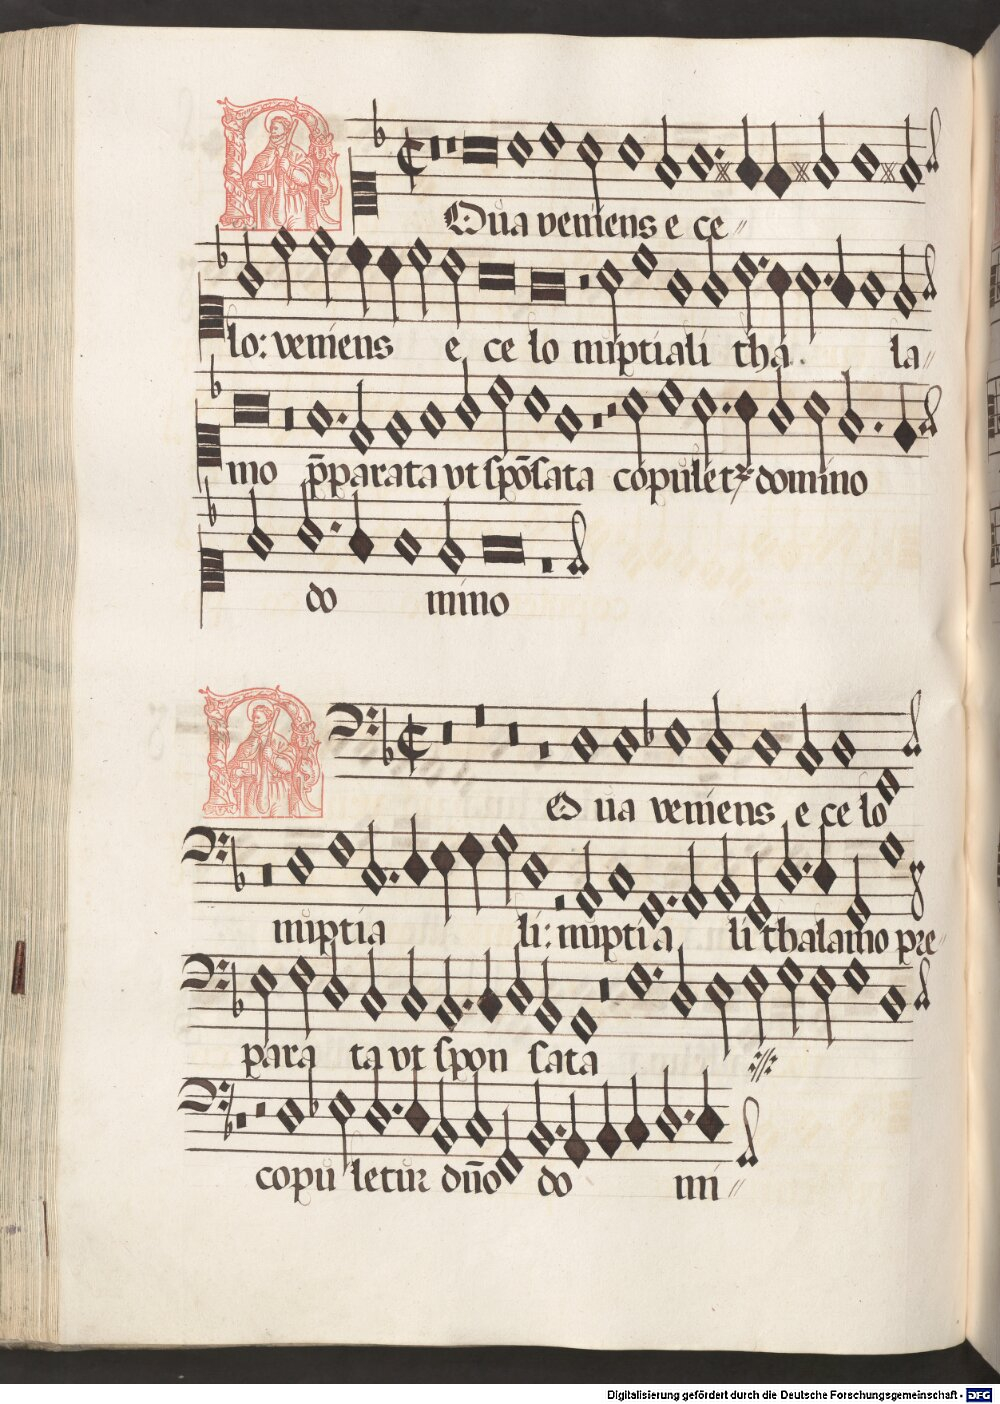 Noua veniens e ce
lo: veniens e celo nuptiali tha la
mo p̄parata vt spōsata copuletꝛ domino
do mino
Noua veniens e celo
nuptia li: nuptia li thalamo pre
para ta vt spon sata
copuletur dn̄o do mi
Digitalisierung gefördert durch die Deutsche Forschungsgemeinschaft - DFG